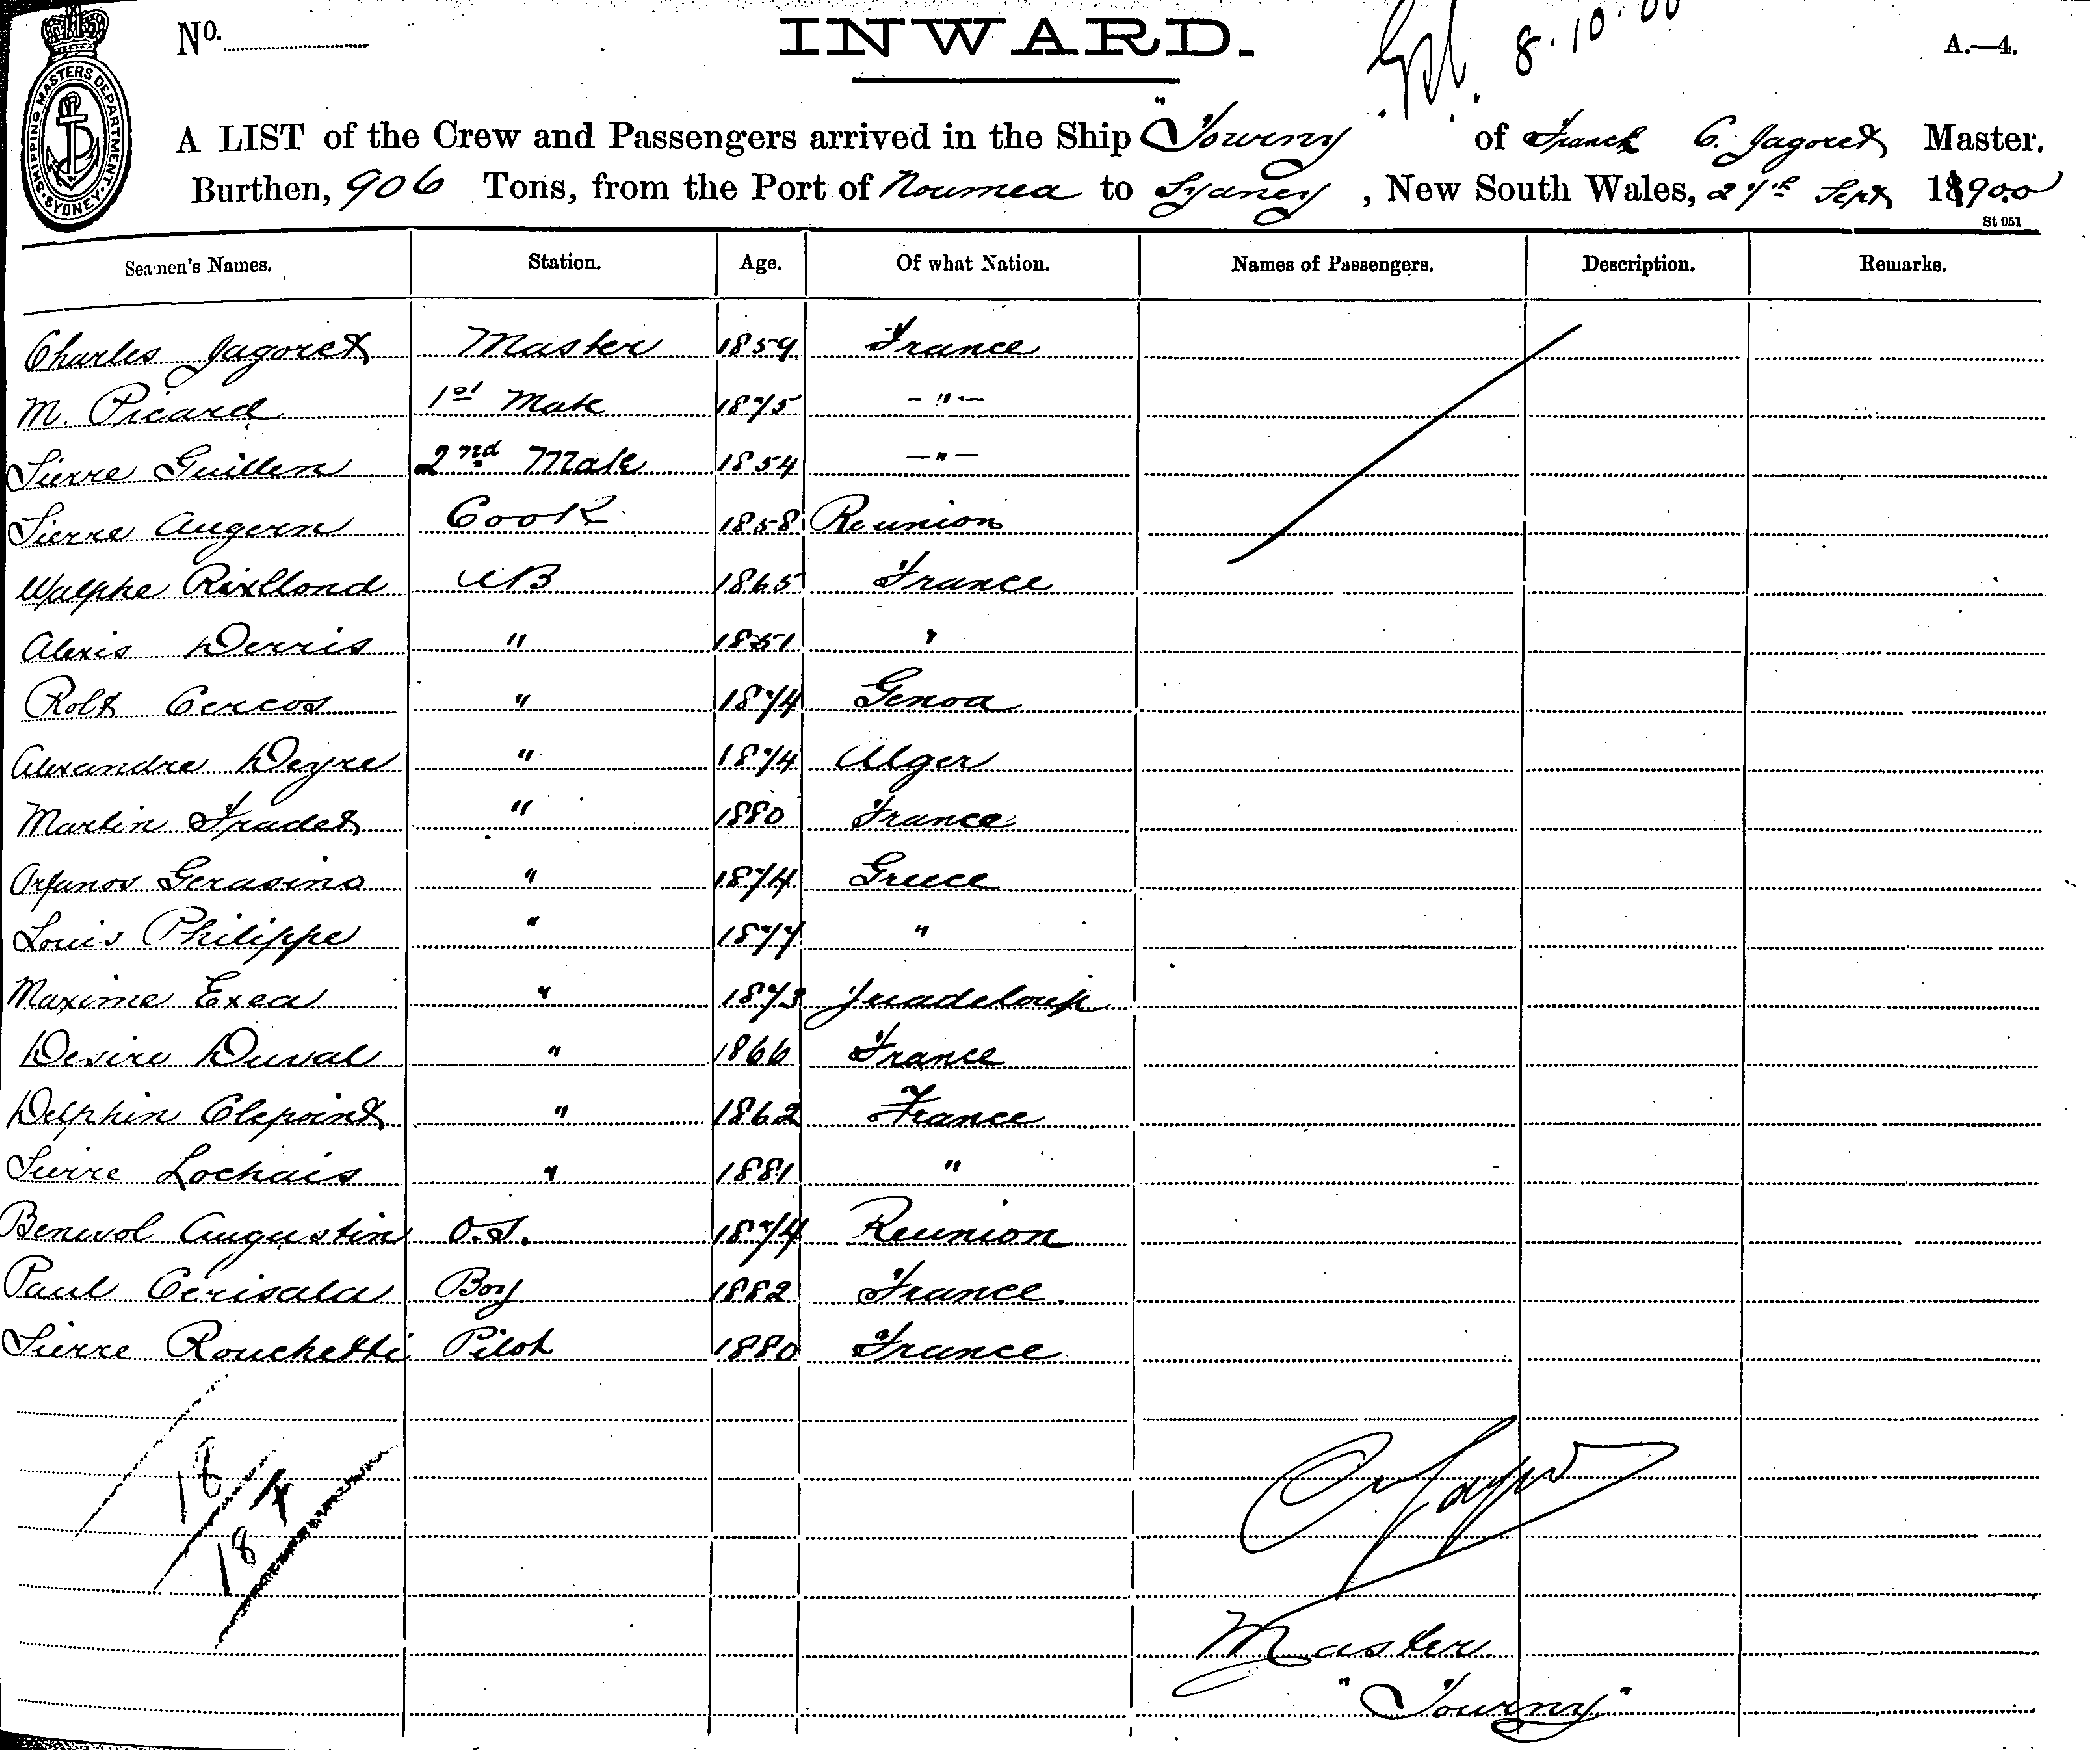 No.
INWARD.
8.10.00
A.—4.
SHIPPING MASTERS DEPARTMENT SYDNEY
A LIST of the Crew and Passengers arrived in the Ship "Tourny" of France C. Jagoret Master.
Burthen, 906 Tons, from the Port of Noumea to Sydney, New South Wales, 27th Sept 1900
St 051
Seamen's Names. Station. Age. Of what Nation. Names of Passengers. Description. Remarks.
Charles Jagoret Master 1859 France
M. Picard 1st Mate 1875 - " -
Pierre Guillem 2nd Mate 1854 - " -
Pierre Augern Cook 1858 Reunion
AB 1865 France
Alexis Derris " 1851 "
Robt Cercos " 1874 Genoa
Alexandre Deyre " 1874 Alger
Martin Fradet " 1880 France
Orfanos Gerasino " 1874 Greece
Louis Philippe " 1877 "
Maxime Exea " 1873 Guadeloup
Desire Duval " 1866 France
Delphin Clepoint " 1862 France
Pierre Lochais " 1881 "
Benivol Augustin O.S. 1874 Reunion
Paul Cerisala Boy 1882 France
Pierre Rouchetti Pilot 1880 France
18
18
Master
"Tourny"